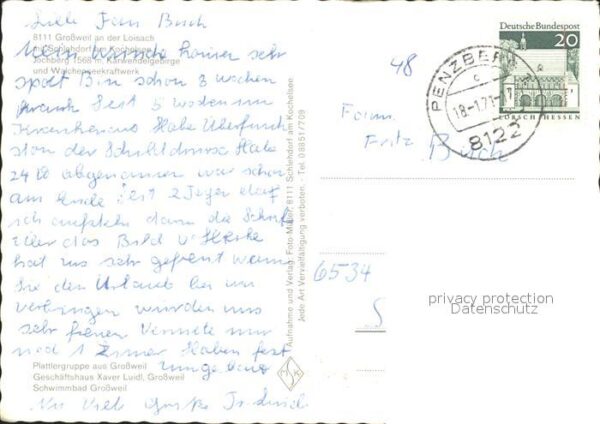 Liebe Fam Busch
8111 Großweil an der Loisach
mit Schlehdorf am Kochelsee
Jochberg 1568 m, Karwendelgebirge
und Walchenseekraftwerk
Meine Wünsche kommen sehr
spät Bin schon 8 Wochen
krank Seit 5 Wochen im
Krankenhaus Habe Überfunk
tion der Schilddrüse Habe
24 abgenommen war schon
am Ende seit 2 Tagen darf
ich aufstehen dann die
das Bild
hat uns sehr gefreut wenn
Sie den Urlaub bei uns
verbringen würden uns
sehr freuen Vermiete nur
noch 1 Zimmer Haben fest
umgebaut
Plattlergruppe aus Großweil
Geschäftshaus Xaver Luidl, Großweil
Schwimmbad Großweil
Nun Viele Grüße
Aufnahme und Verlag: Foto Maier, 8111 Schlehdorf am Kochelsee
Jede Art Vervielfältigung verboten. - Tel. 08851/709
Deutsche Bundespost
20
LORSCH/HESSEN
PENZBERG
c
18-1.71-17
8122
48
Fam.
Fritz Busch
6534
S
privacy protection
Datenschutz